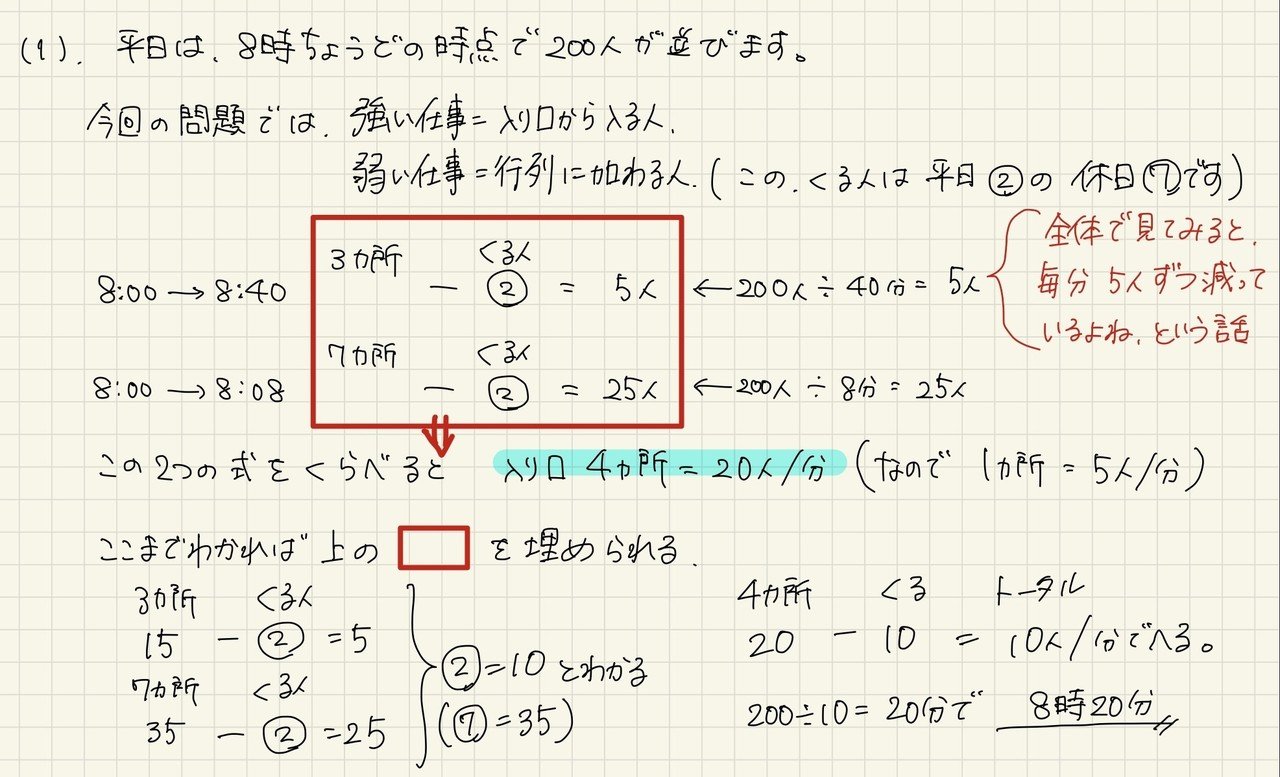 (1). 平日は、8時ちょうどの時点で200人が並びます。
今回の問題では、強い仕事=入り口から入る人、
弱い仕事=行列に加わる人、(この、くる人は平日②の休日⑦です)
全体で見てみると、
毎分5人ずつ減って
いるよね、という話
3カ所 くる人
8:00→8:40 − ② = 5人 ←200人÷40分=5人
7カ所 くる人
8:00→8:08 − ② = 25人 ←200人÷8分=25人
この2つの式をくらべると 入り口4カ所=20人/分 (なので 1カ所=5人/分)
ここまでわかれば上の を埋められる、
3カ所 くる人
15 − ② =5
7カ所 くる人
35 − ② =25
②=10とわかる
(⑦=35)
4カ所 くる トータル
20 − 10 = 10人/分でへる。
200÷10=20分で 8時20分